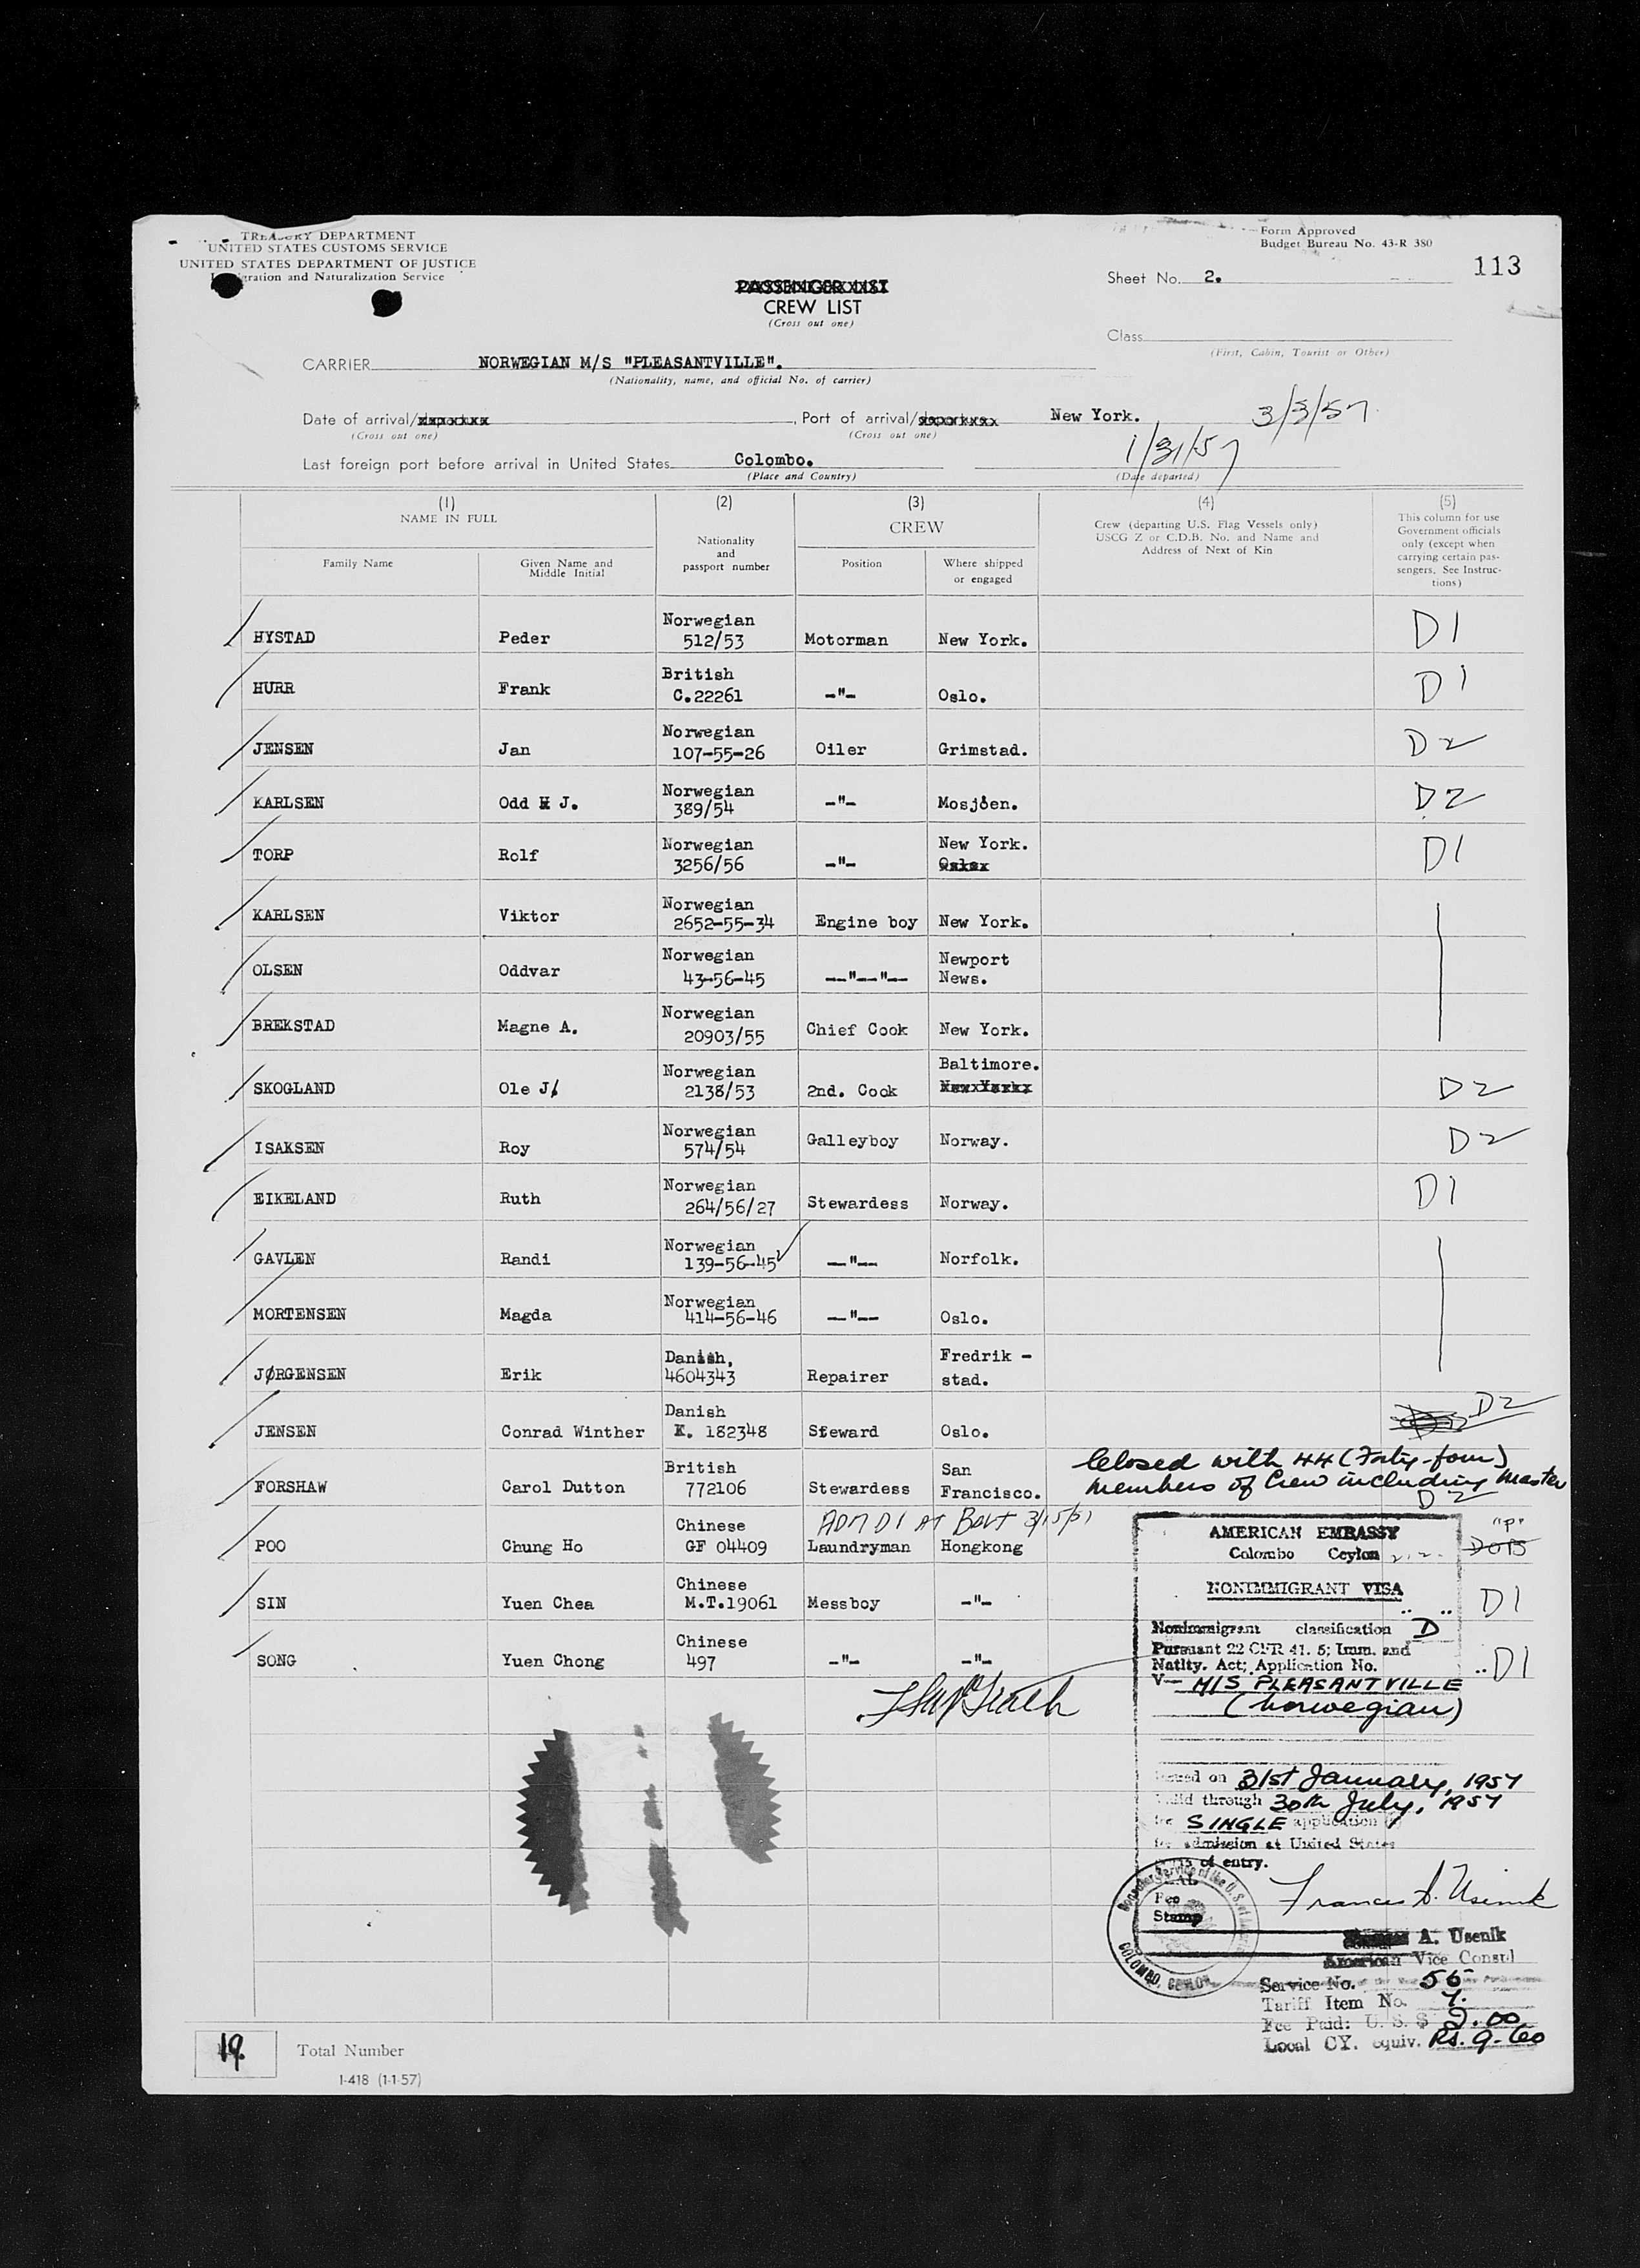 TREASURY DEPARTMENT
UNITED STATES CUSTOMS SERVICE
UNITED STATES DEPARTMENT OF JUSTICE
Immigration and Naturalization Service
Form Approved
Budget Bureau No. 43-R 380
113
PASSENGER LIST
CREW LIST
(Cross out one)
Sheet No. 2.
Class
(First, Cabin, Tourist or Other)
CARRIER NORWEGIAN M/S "PLEASANTVILLE".
(Nationality, name, and official No. of carrier)
Date of arrival/departure , Port of arrival/departure New York. 3/3/57
(Cross out one) (Cross out one)
Last foreign port before arrival in United States Colombo. 1/31/57
(Place and Country) (Date departed)
(1) (2) (3) (4) (5)
NAME IN FULL
Family Name
Given Name and
Middle Initial
Nationality
and
passport number
CREW
Position
Where shipped
or engaged
Crew (departing U.S. Flag Vessels only)
USCG Z or C.D.B. No. and Name and
Address of Next of Kin
This column for use
Government officials
only (except when
carrying certain pas-
sengers. See Instruc-
tions)
HYSTAD Peder Norwegian 512/53 Motorman New York. D1
HURR Frank British C.22261 -"- Oslo. D1
JENSEN Jan Norwegian 107-55-26 Oiler Grimstad. D2
KARLSEN Odd H J. Norwegian 389/54 -"- Mosjöen. D2
TORP Rolf Norwegian 3256/56 -"- New York. D1
KARLSEN Viktor Norwegian 2652-55-34 Engine boy New York.
OLSEN Oddvar Norwegian 43-56-45 --"--"-- Newport News.
BREKSTAD Magne A. Norwegian 20903/55 Chief Cook New York.
SKOGLAND Ole J. Norwegian 2138/53 2nd. Cook Baltimore. D2
ISAKSEN Roy Norwegian 574/54 Galleyboy Norway. D2
EIKELAND Ruth Norwegian 264/56/27 Stewardess Norway. D1
GAVLEN Randi Norwegian 139-56-45 --"-- Norfolk.
MORTENSEN Magda Norwegian 414-56-46 --"-- Oslo.
JØRGENSEN Erik Danish, 4604343 Repairer Fredrik - stad.
JENSEN Conrad Winther Danish K. 182348 Steward Oslo. D2
Closed with 44 (Forty-four)
members of Crew including Master
FORSHAW Carol Dutton British 772106 Stewardess San Francisco. D2
ADM D1 AT BALT 3/15/57
POO Chung Ho Chinese GF 04409 Laundryman Hongkong "P"
SIN Yuen Chea Chinese M.T.19061 Messboy -"- D1
SONG Yuen Chong Chinese 497 -"- -"- D1
AMERICAN EMBASSY
Colombo Ceylon
NONIMMIGRANT VISA
Nonimmigrant classification D
Pursuant 22 CFR 41. 5; Imm. and
Natlty. Act; Application No.
V- M/S PLEASANTVILLE
(Norwegian)
Issued on 31st January, 1957
Valid through 30th July, 1957
for SINGLE application
for admission at United States
of entry.
Fee
Stamp
COLOMBO, CEYLON
Frances A. Usenik
A. Usenik
American Vice Consul
Service No. 56
Tariff Item No. 7.
Fee Paid: U. S. $ 2.00
Local CY. equiv. Rs. 9-60
19. Total Number
I-418 (1-1-57)